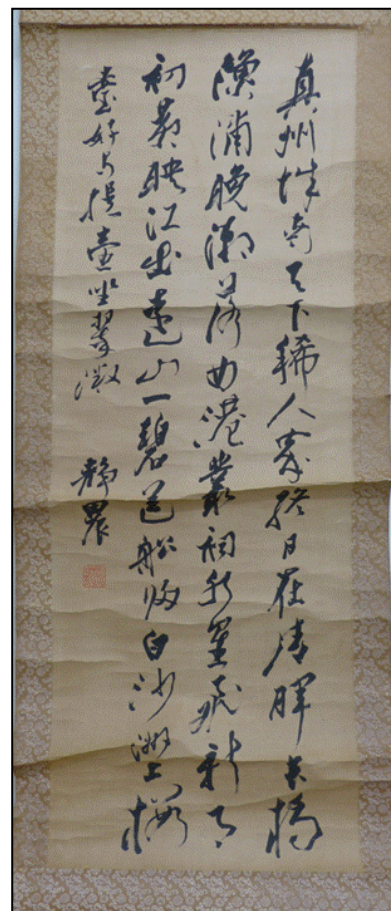 真州城南天下稀人家終日在清暉長橋
漁浦晚潮落曲港叢祠飛新月
初黃映江出遠山一碧送船歸白沙洲上樓
臺好与提壺坐翠微 靜農